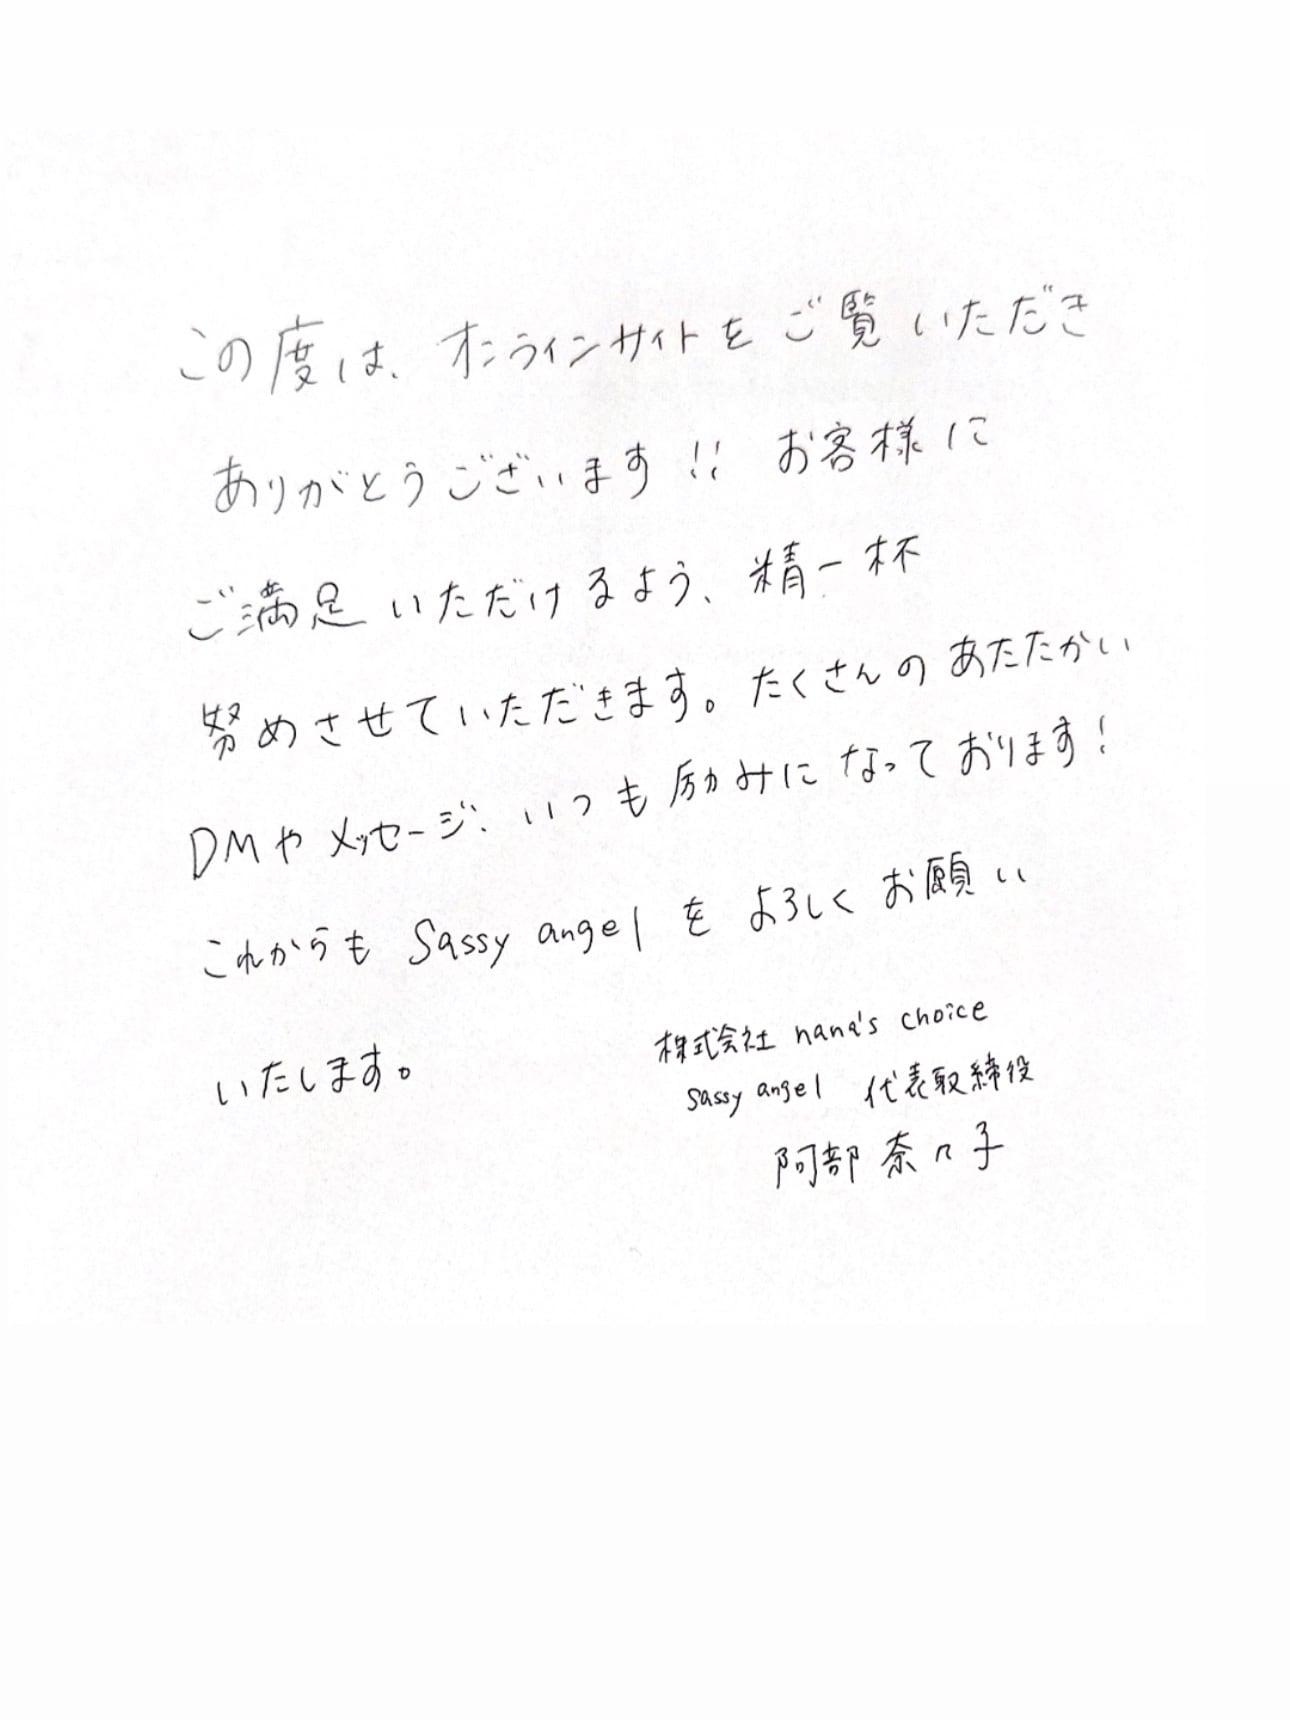 この度は、オンラインサイトをご覧いただき
ありがとうございます!! お客様に
ご満足いただけるよう、精一杯
努めさせていただきます。たくさんのあたたかい
DMやメッセージ、いつも励みになっております!
これからも Sassy angel を よろしくお願い
いたします。
株式会社 nana's choice
sassy angel 代表取締役
阿部 奈々子